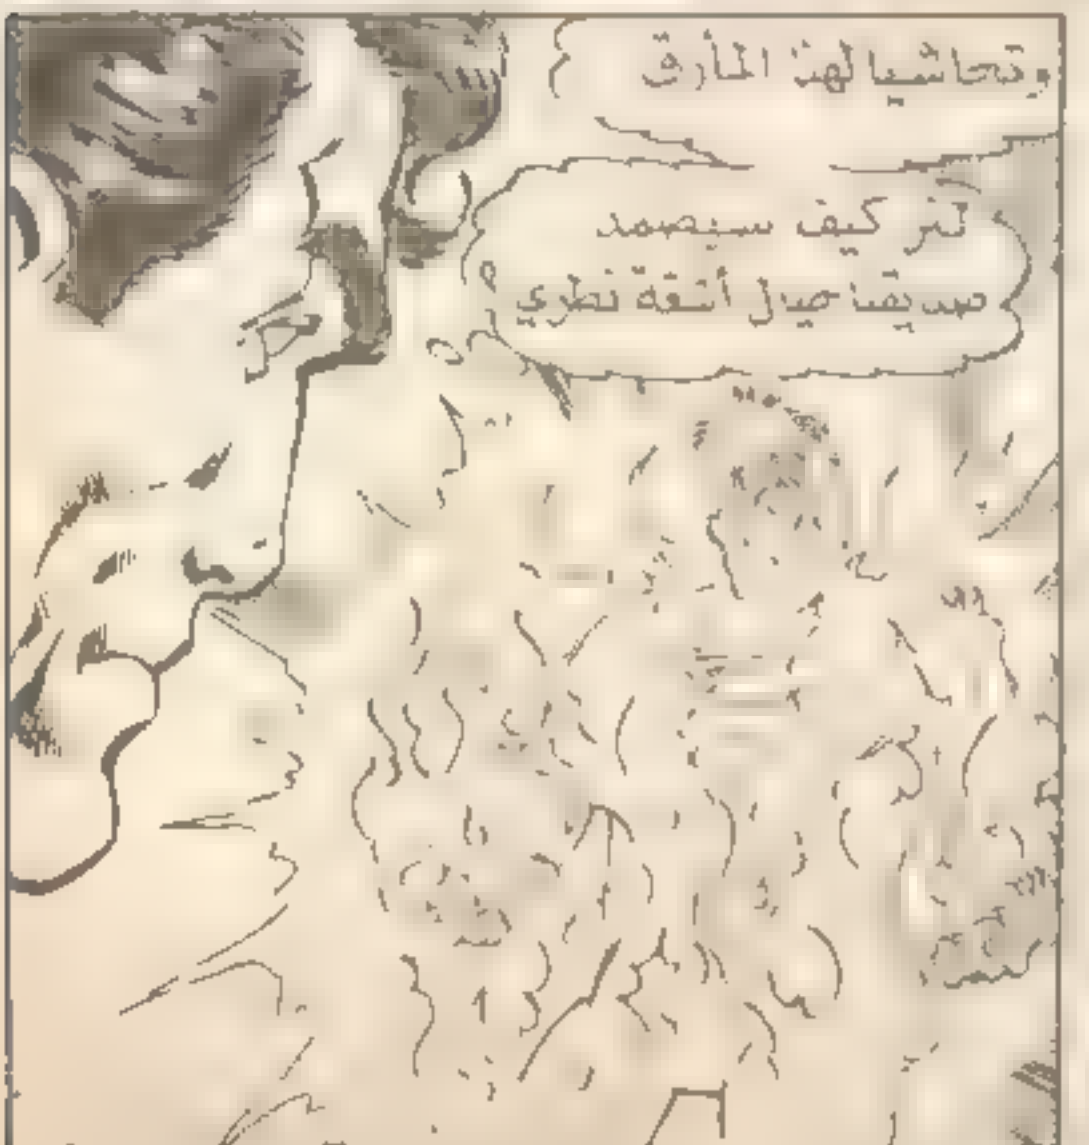 وتحاشيا لهذ المأزق
لنر كيف سيصمد
صديقنا حيال أشعة نظري